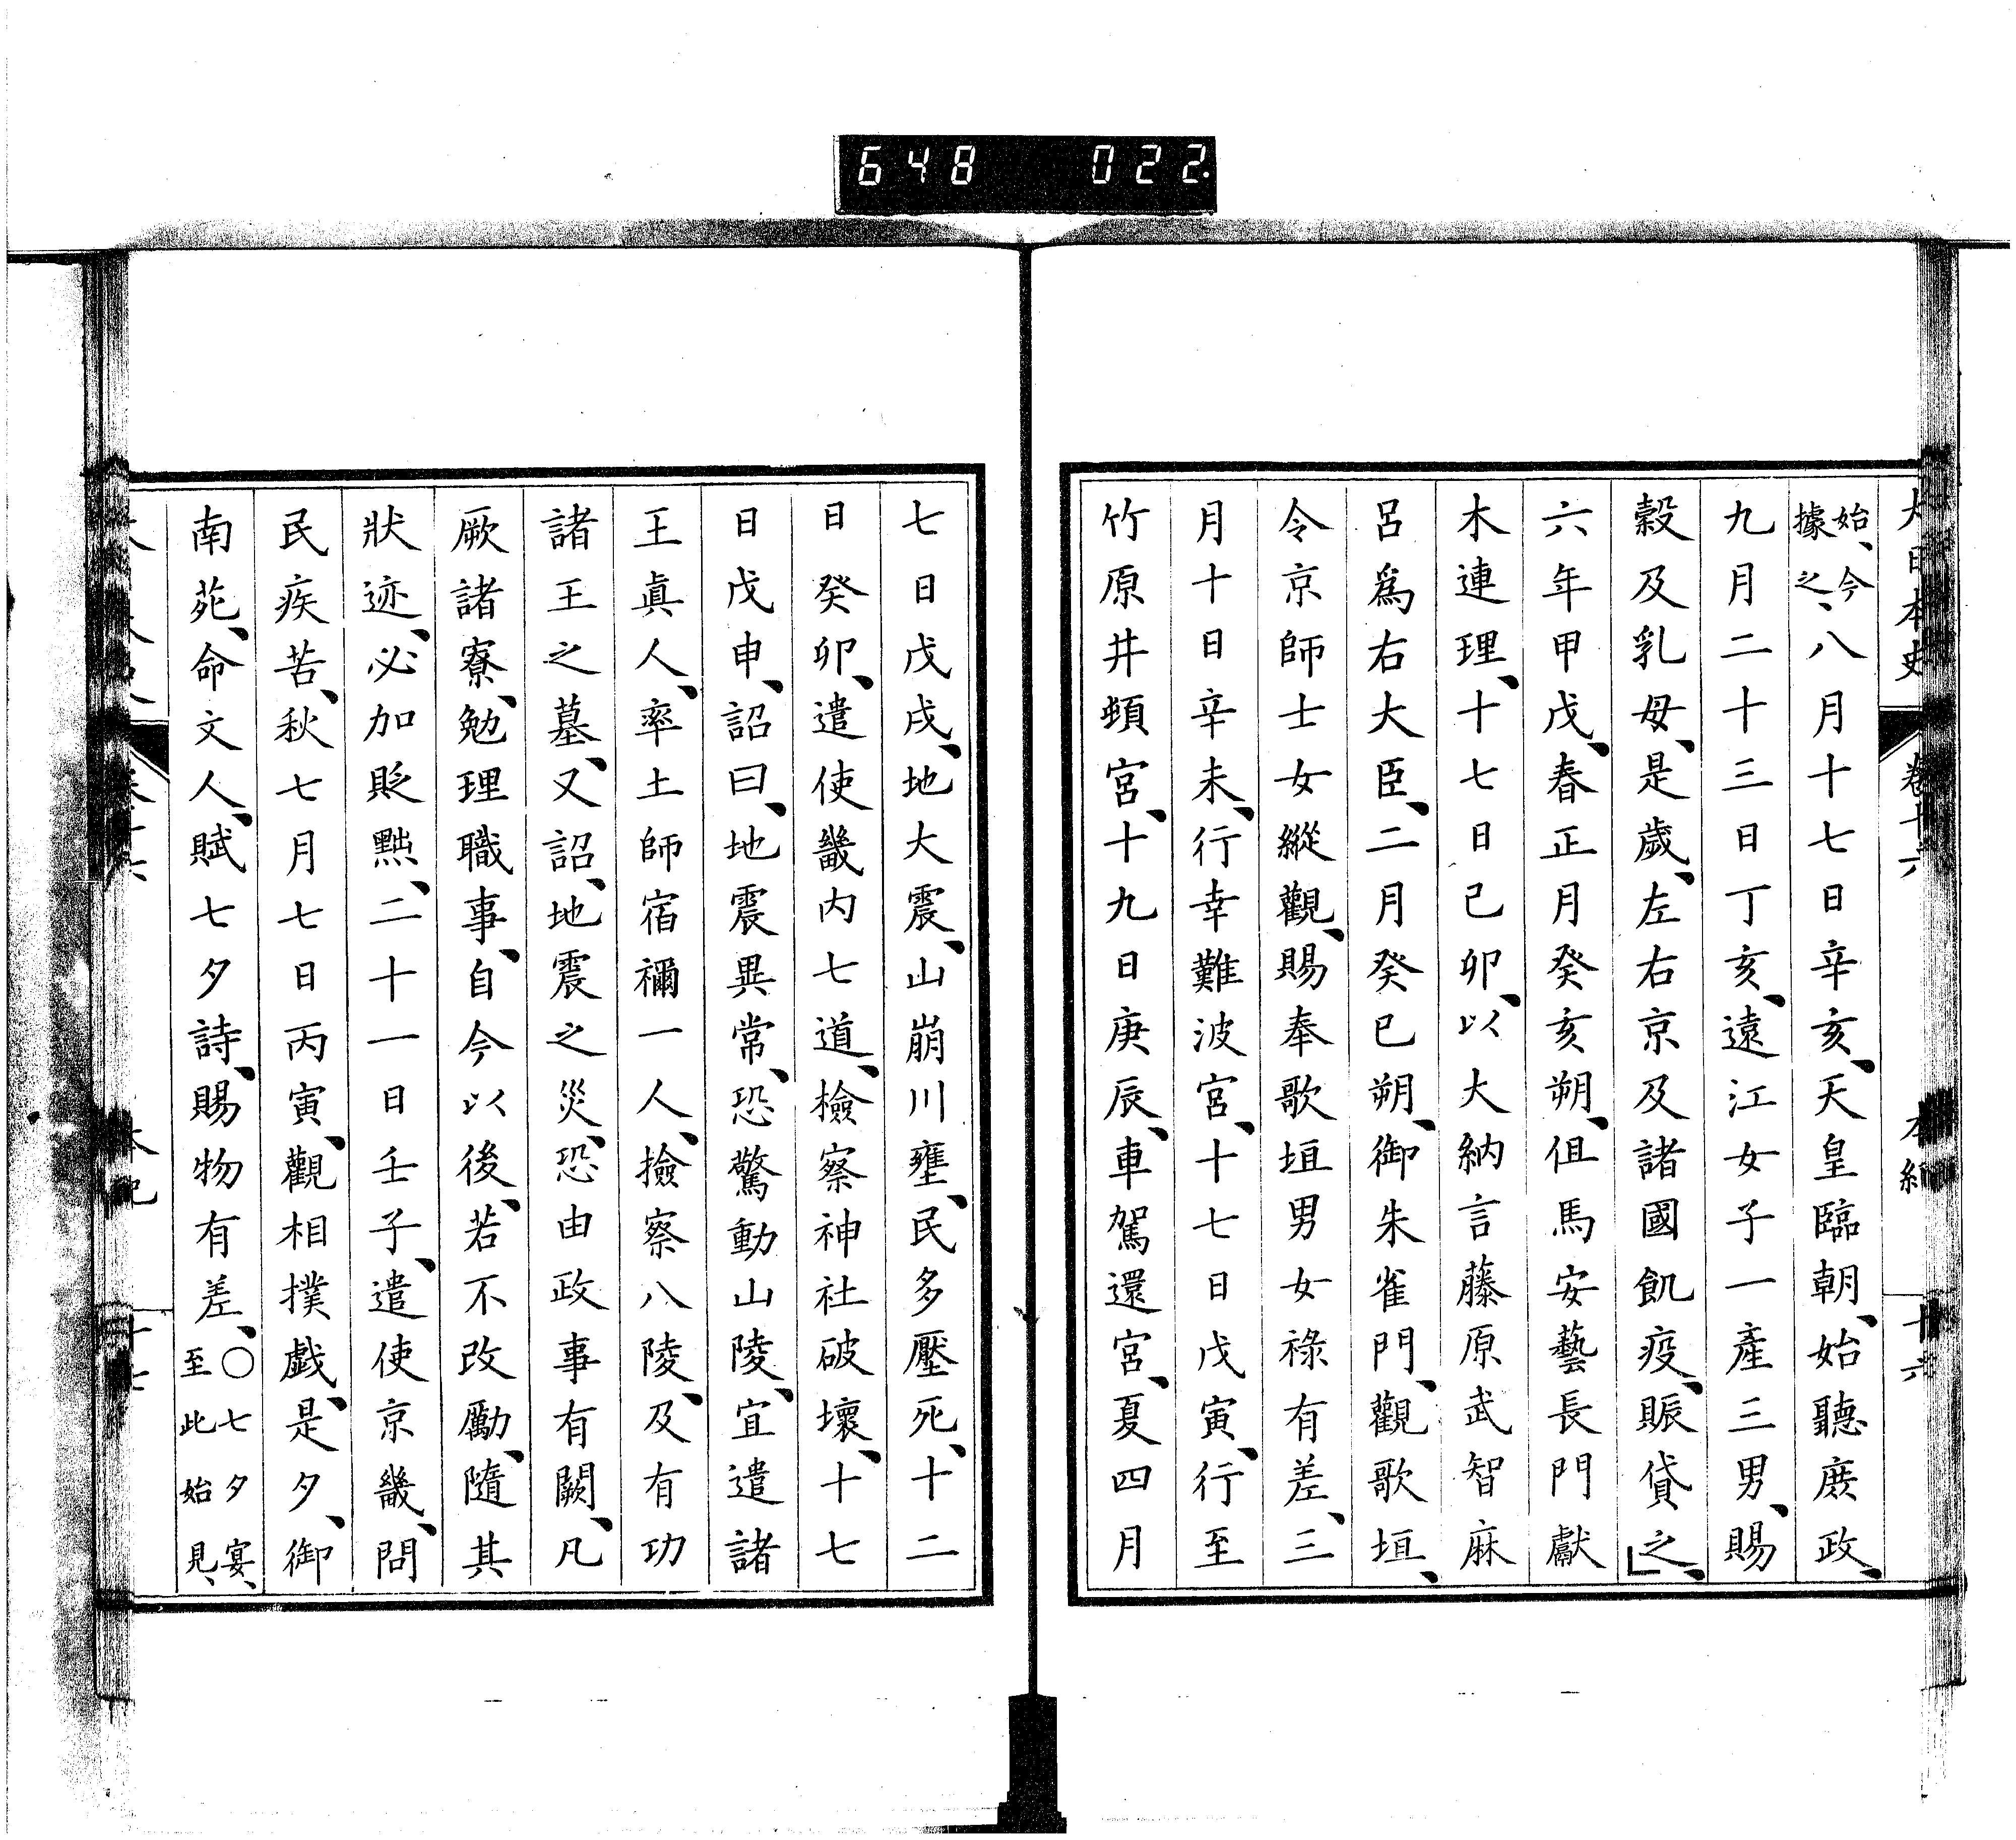 648 022
大日本史 卷十六 本紀 十六
始、今據之、八月十七日辛亥、天皇臨朝、始聽庶政、
九月二十三日丁亥、遠江女子一產三男、賜
穀及乳母、是歲、左右京及諸國飢疫、賑貸之、」
六年甲戌、春正月癸亥朔、但馬安藝長門獻
木連理、十七日己卯、以大納言藤原武智麻
呂爲右大臣、二月癸巳朔、御朱雀門、觀歌垣、
令京師士女縱觀、賜奉歌垣男女祿有差、三
月十日辛未、行幸難波宮、十七日戊寅、行至
竹原井頓宮、十九日庚辰、車駕還宮、夏四月
七日戊戌、地大震、山崩川壅、民多壓死、十二
日癸卯、遣使畿內七道、檢察神社破壞、十七
日戊申、詔曰、地震異常、恐驚動山陵、宜遣諸
王眞人、率土師宿禰一人、撿察八陵、及有功
諸王之墓、又詔、地震之災、恐由政事有闕、凡
厥諸寮、勉理職事、自今以後、若不改勵、隨其
狀迹、必加貶黜、二十一日壬子、遣使京畿、問
民疾苦、秋七月七日丙寅、觀相撲戲、是夕、御
南苑、命文人、賦七夕詩、賜物有差、〇七夕宴、至此始見、